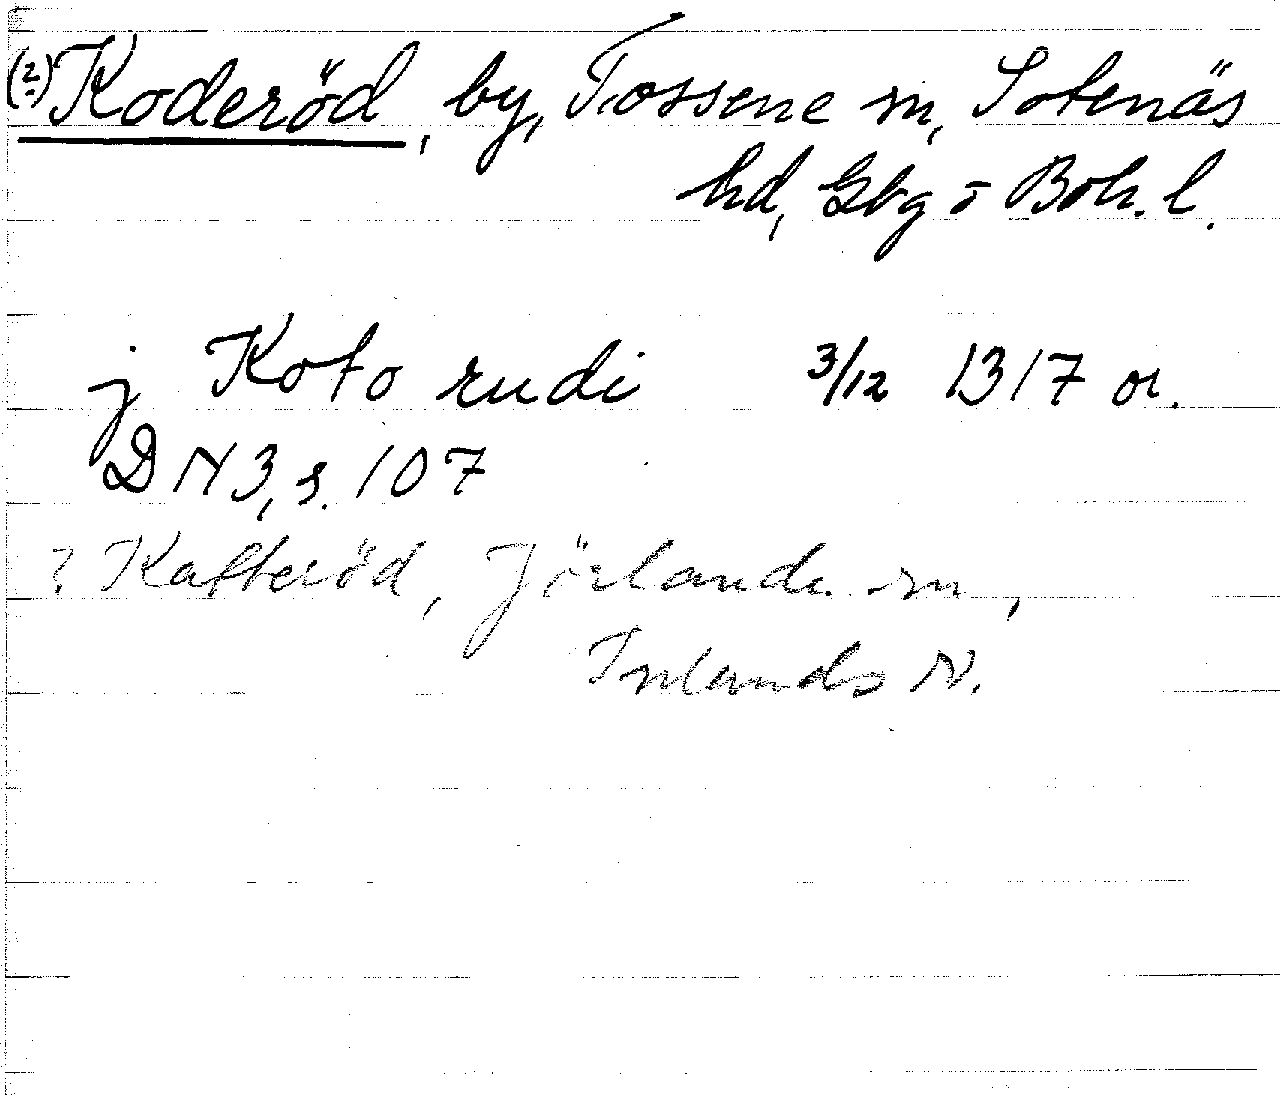 (?) Koderöd, by, Tossene sn, Sotenäs
hd, Gbg o Boh. l.
j Koto rudi 3/12 1317 or.
DN 3, s. 107
? Katteröd, Jörlanda sn,
Inlands N.